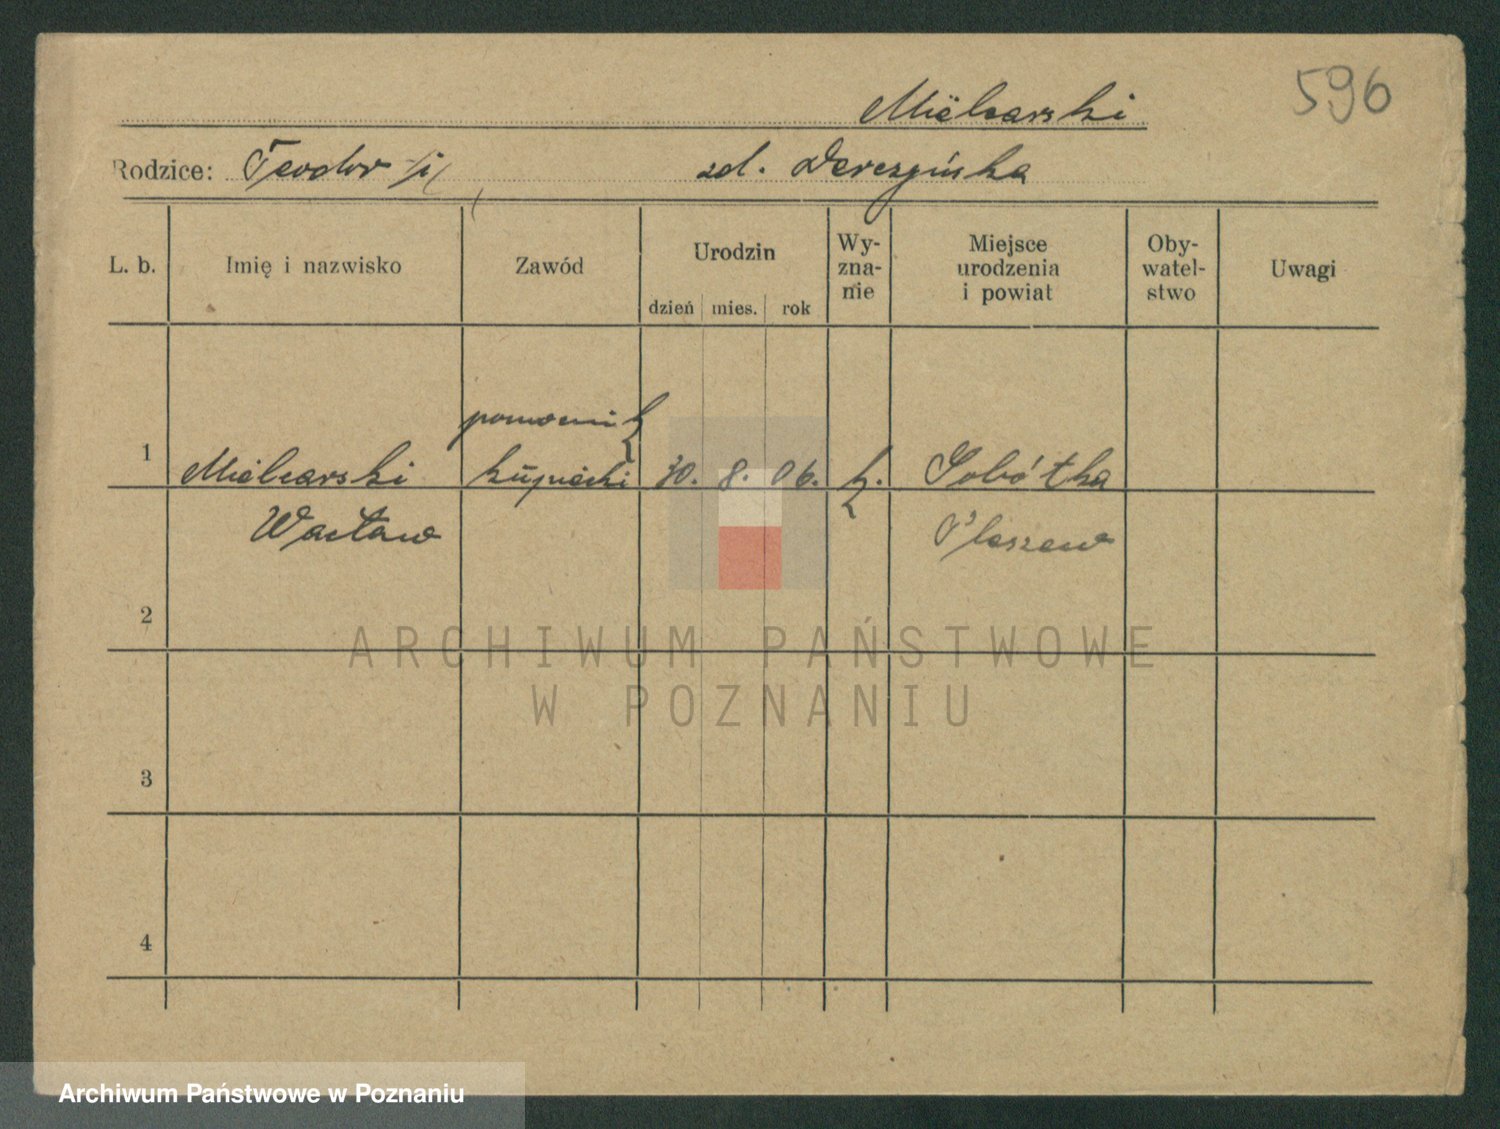 596
Mielcarski
Rodzice: Teodor i zd. Derczyńska
L. b. Imię i nazwisko Zawód Urodzin dzień mies. rok Wy-zna-nie Miejsce urodzenia i powiat Oby-watel-stwo Uwagi
pomocnik
1 Mielcarski kupiecki 30. 8. 06. k. Sobótka
Wacław Pleszew
2
ARCHIWUM PAŃSTWOWE
W POZNANIU
3
4
Archiwum Państwowe w Poznaniu